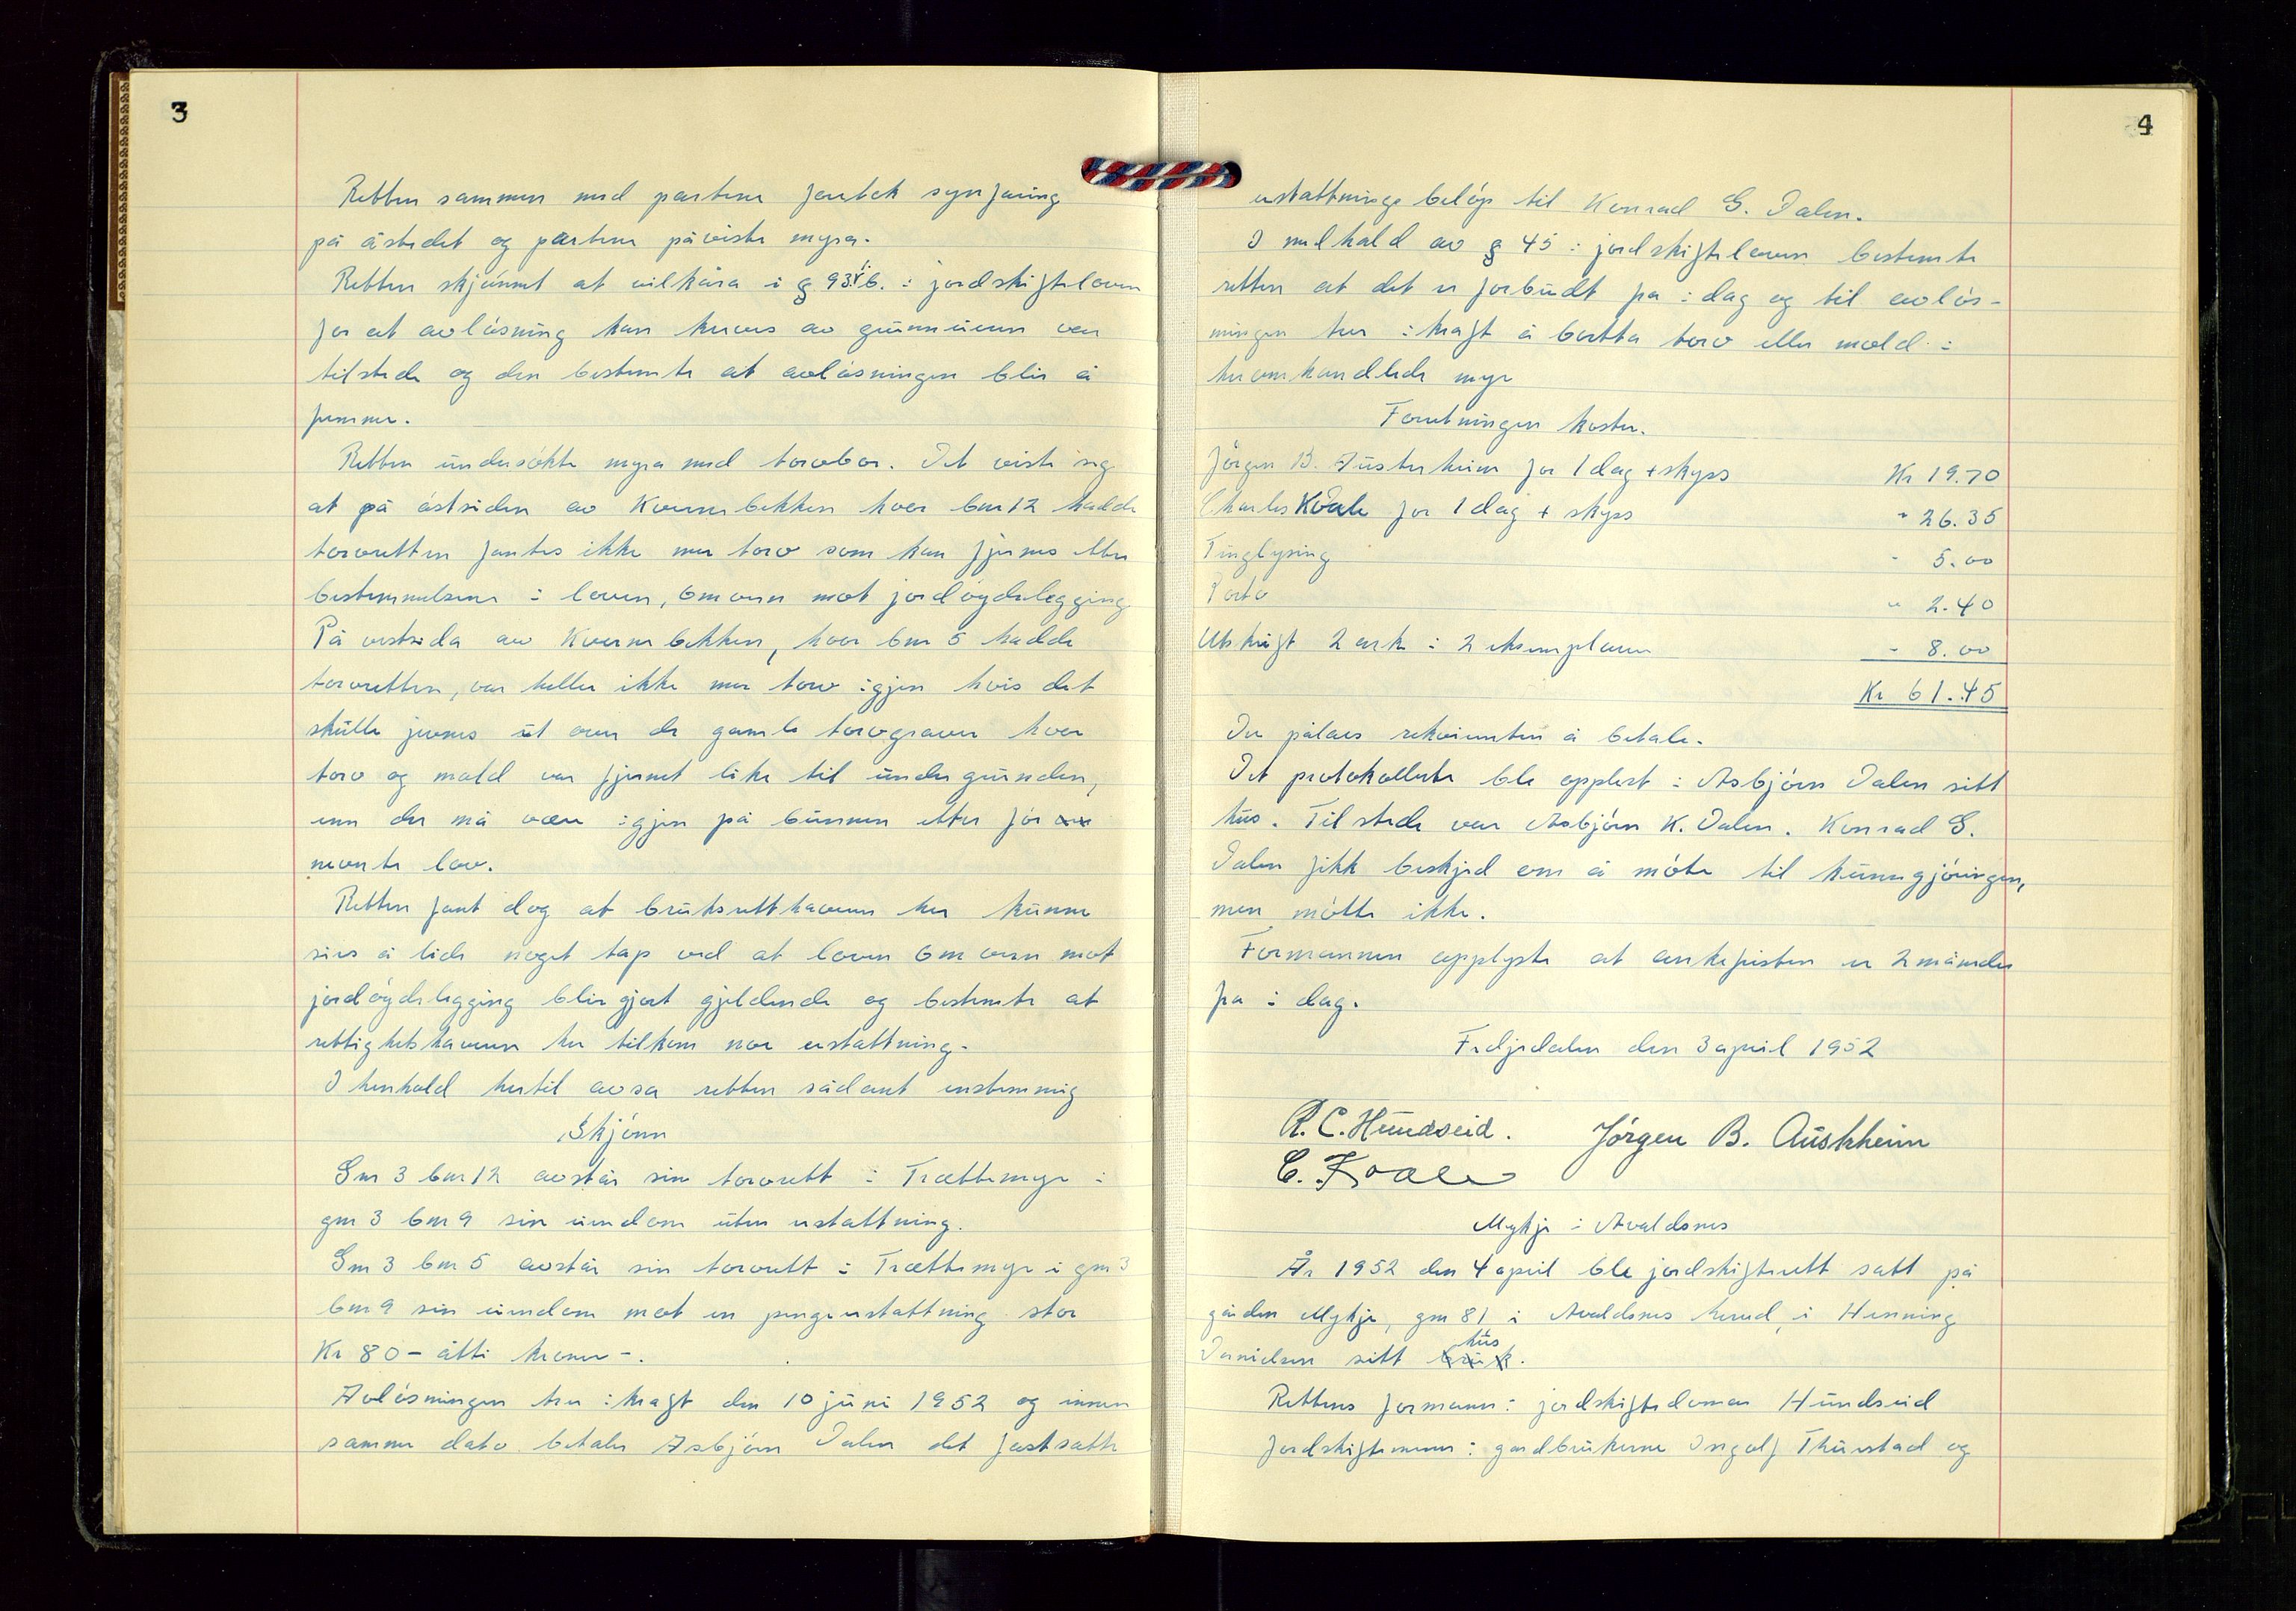 3
Retten sammen med partene foretok synfaring
på åstedet og partene påviste myra.
Retten skjønnet at vilkåra i § 93.V.b. i jordskifteloven
for at avløsning kan kreves av grunneieren var
tilstede og den bestemte at avløsningen blir å
fremme.
Retten undersøkte myra med torvbor. Det viste seg
at på østsiden av Kvernebekken hvor bnr 12 hadde
torvretten fantes ikke mer torv som kan fjernes etter
bestemmelsene i loven, om vern mot jordøydelegging
På vestsida av Kvernebekken, hvor bnr 5 hadde
torvretten, var heller ikke mer torv igjen hvis det
skulle jevnes ut over de gamle torvgraver hvor
torv og mold var fjernet like til undergrunden,
enn der må være igjen på bunnen etter før
nevnte lov.
Retten fant dog at bruksretthaveren her kunne
sies å lide noget tap ved at loven om vern mot
jordøydelegging blir gjort gjeldende og bestemte at
rettighetshaveren her tilkom noe erstattning.
I henhold hertil avsa retten sådant enstemmig
Skjønn
Gnr 3 bnr 12 avstår sin torvrett i Trættemyr i
gnr 3 bnr 9 sin eiendom uten erstattning.
Gnr 3 bnr 5 avstår sin torvrett i Trættemyr i gnr 3
bnr 9 sin eiendom mot en pengeerstattning stor
Kr 80 - åtti kroner -.
Avløsningen trer i kraft den 10 juni 1952 og innen
samme dato betaler Asbjørn Dalen det fastsatte
4
erstattnings beløp til Konrad G. Dalen.
I medhald av § 45 i jordskifteloven bestemte
retten at det er forbudt fra i dag og til avløs-
ningen trer i kraft å bortta torv eller mold i
heromhandlede myr
Forretningen koster.
Jørgen B. Austerheim for 1 dag + skyss Kr 19.70
Charles Kvale for 1 dag + skyss " 26.35
Tinglysing " 5.00
Porto " 2.40
Utskrift 2 ark i 2 eksemplarer " 8.00
Kr 61.45
Der pålaes rekvirenten å betale.
Det protokollerte ble opplest i Asbjørn Dalen sitt
hus. Tilstede var Asbjørn K. Dalen. Konrad G.
Dalen fikk beskjed om å møte til kunngjøringen,
men møtte ikke.
Formannen opplyste at ankefristen er 2 måneder
fra i dag.
Fredjedalen den 3 april 1952
R.C. Hundseid. Jørgen B. Austrheim
C. Kvale
Mykje i Avaldsnes
År 1952 den 4 april ble jordskifterett satt på
gården Mykje, gnr 81 i Avaldsnes herred, i Henning
Danielsen sitt bruk hus.
Rettens formann: jordskiftedomar Hundseid
Jordskiftemenn: gardbrukerne Ingolf Thuestad og